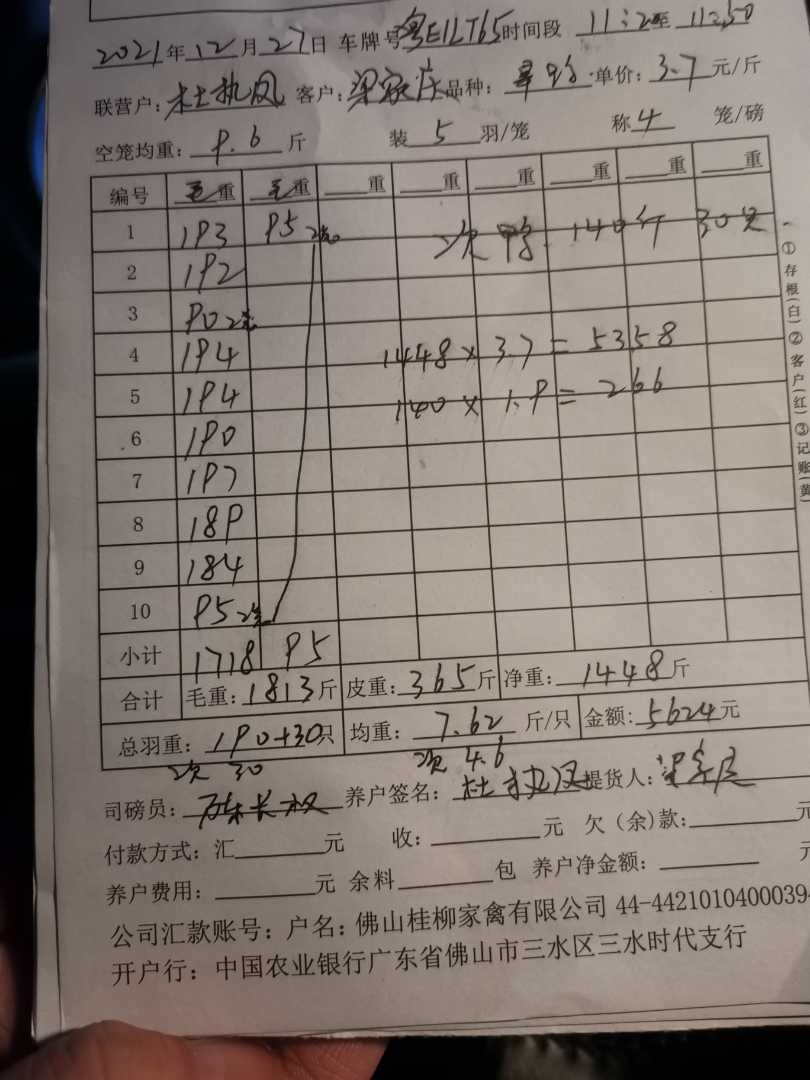 2021年12月27日 车牌号粤E1LT65时间段 11:2至 11:50
联营户：杜执凤 客户：梁家庆 品种： 单价：3.7元/斤
空笼均重：9.6斤 装5羽/笼 称4笼/磅
编号 毛重 毛重 重 重 重 重 重 重
1 193 95 2笼 次鸭 140斤 30只
2 192
3 90 2笼
4 194 1448×3.7=5358
5 194 140×1.9=266
6 190
7 197
8 189
9 184
10 95 2笼
小计 1718 95
合计 毛重：1813斤 皮重：365斤 净重：1448斤
总羽重：190+30只 均重：7.62斤/只 金额：5624元
次30 次4.6
司磅员： 养户签名：杜执凤 提货人：梁家庆
付款方式：汇 元 收： 元 欠（余)款： 元
养户费用： 元 余料 包 养户净金额： 元
公司汇款账号：户名：佛山桂柳家禽有限公司 44-4421010400039
开户行：中国农业银行广东省佛山市三水区三水时代支行
①存根(白)②客户(红)③记账(黄)